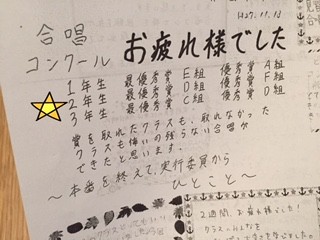 H27.11.13
合唱
コンクール
お疲れ様でした
1年生 最優秀賞 E組 優秀賞 A組
2年生 最優秀賞 D組 優秀賞 F組
3年生 最優秀賞 C組 優秀賞 D組
賞を取れたクラスも、取れなかった
クラスも悔いの残らない合唱が
できたと思います。
〜本番を終えて、実行委員から
ひとこと〜
2週間、お疲れ様でした!